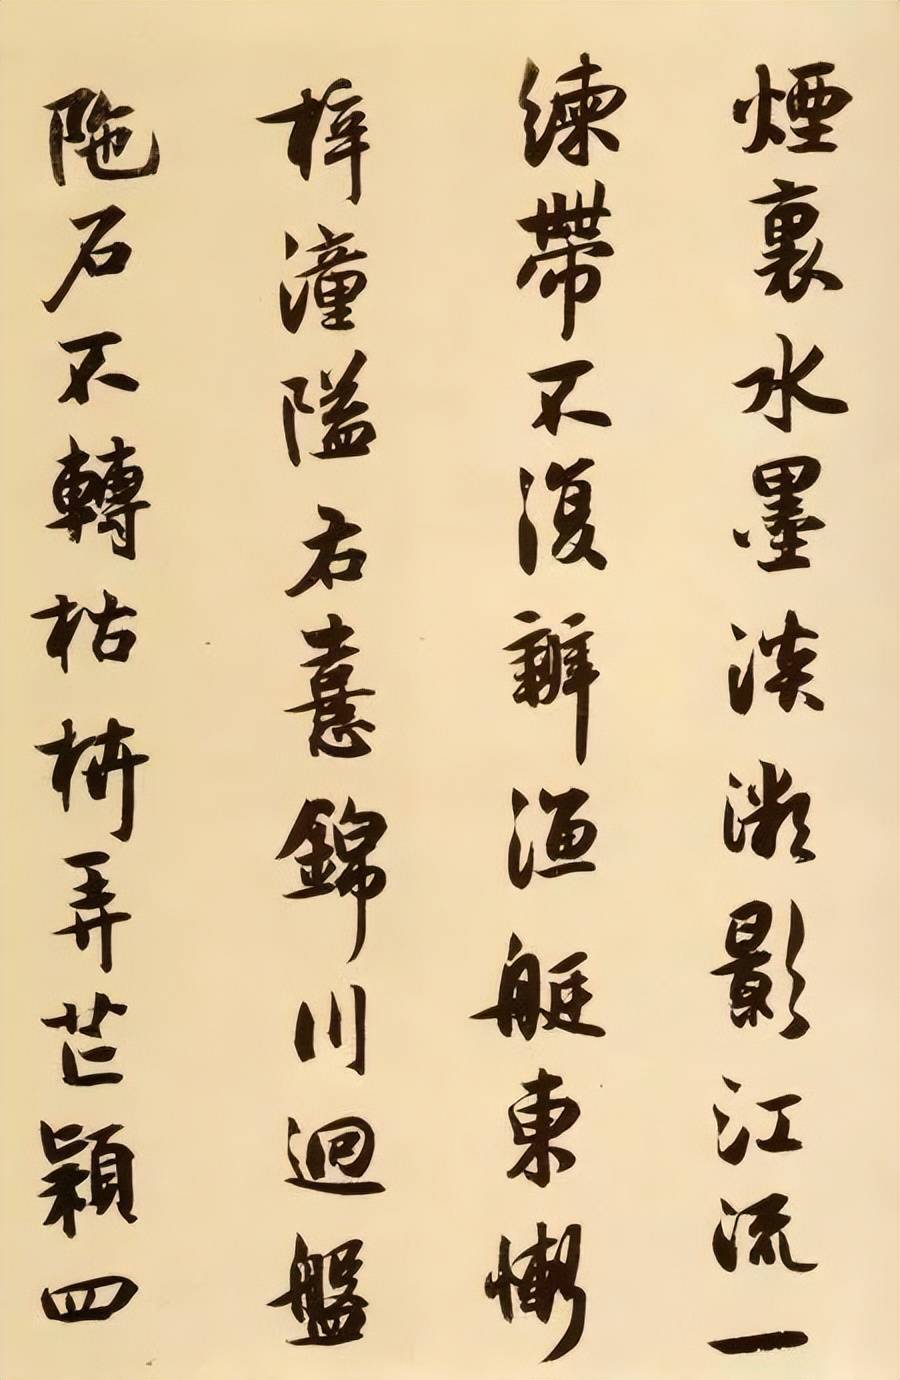 煙裏水墨淡澂影江流一
練帶不復辨漁艇東慚
梓潼隘右憙錦川迴盤
陁石不轉枯枿弄芒穎四